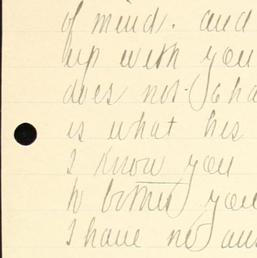 of mind. and
up with you
does not
is what his
I know you
to bother you
I have no